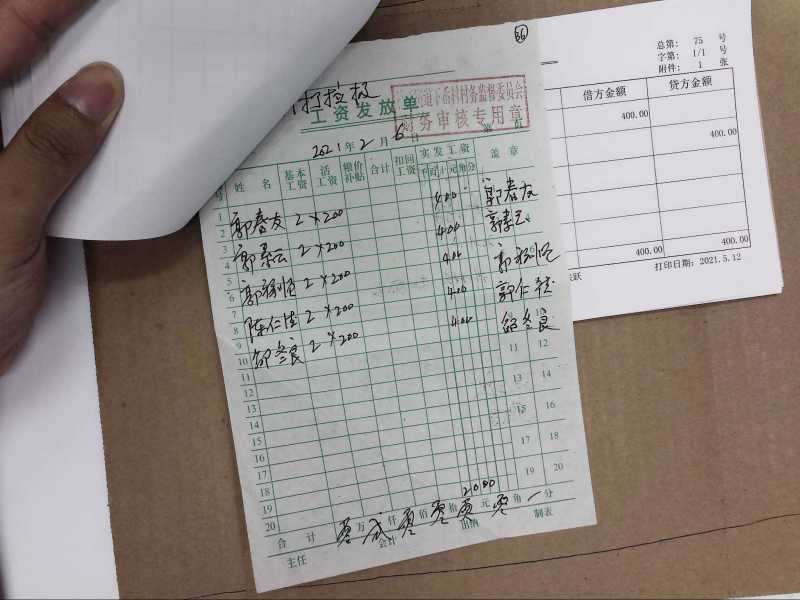 36
工资发放单
村务监督委员会
财务审核专用章
2021年2月6日
第 页
号 姓名 基本工资 活工资 粮价补贴 合计 扣回工资 实发工资 盖章
千百十元角分
1
2 郭春友 2×200 400 郭春友
3
4 2×200 400
5
6 2×200 400
7
8 陈仁 2×200 400 郭仁
9
10 邹冬良 2×200 400 邹冬良
11 11 12
12
13 13 14
14
15 15 16
16
17 17 18
18
19 19 20
20
2000
合计 零万贰仟零佰零拾零元零角 分
主任 会计 出纳 制表
总第: 75 号
字第: 1/1 号
附件: 1 张
借方金额 贷方金额
400.00
400.00
400.00 400.00
跃 打印日期: 2021.5.12